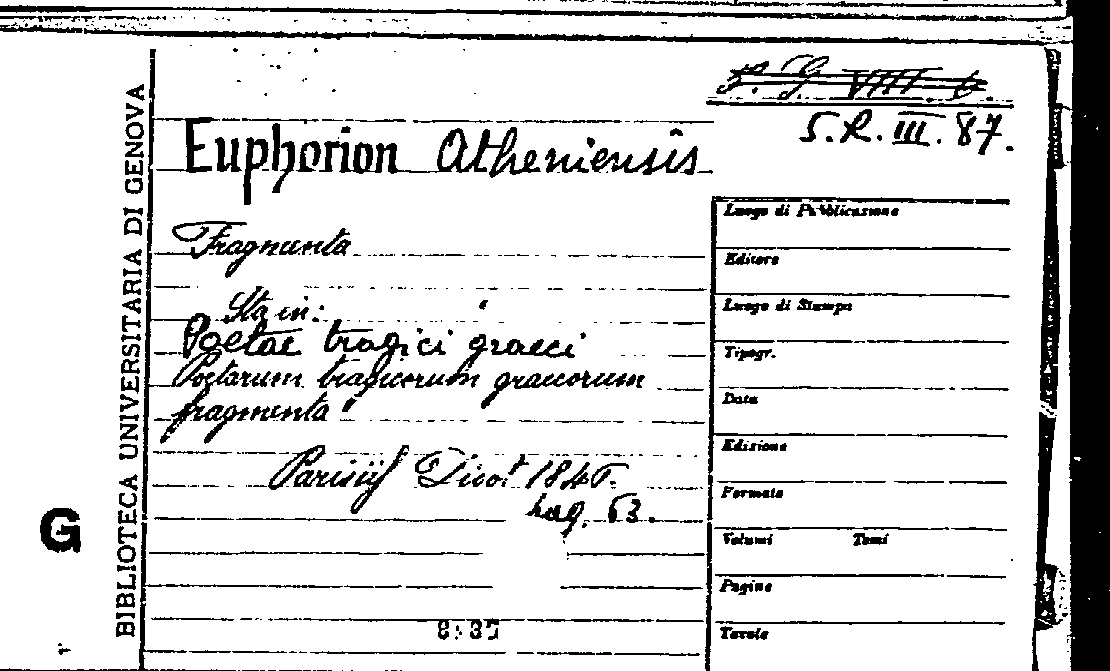 S. G. VIII. 6.
S.R. III. 87.
Euphorion Atheniensis
Fragmenta
Sta in:
Poetae tragici graeci
"Poetarum tragicorum graecorum
fragmenta"
Parisiis Didot 1846.
pag. 63.
BIBLIOTECA UNIVERSITARIA DI GENOVA
G
Luogo di Pubblicazione
Editore
Luogo di Stampa
Tipogr.
Data
Edizione
Formato
Volumi Tomi
Pagine
Tavole